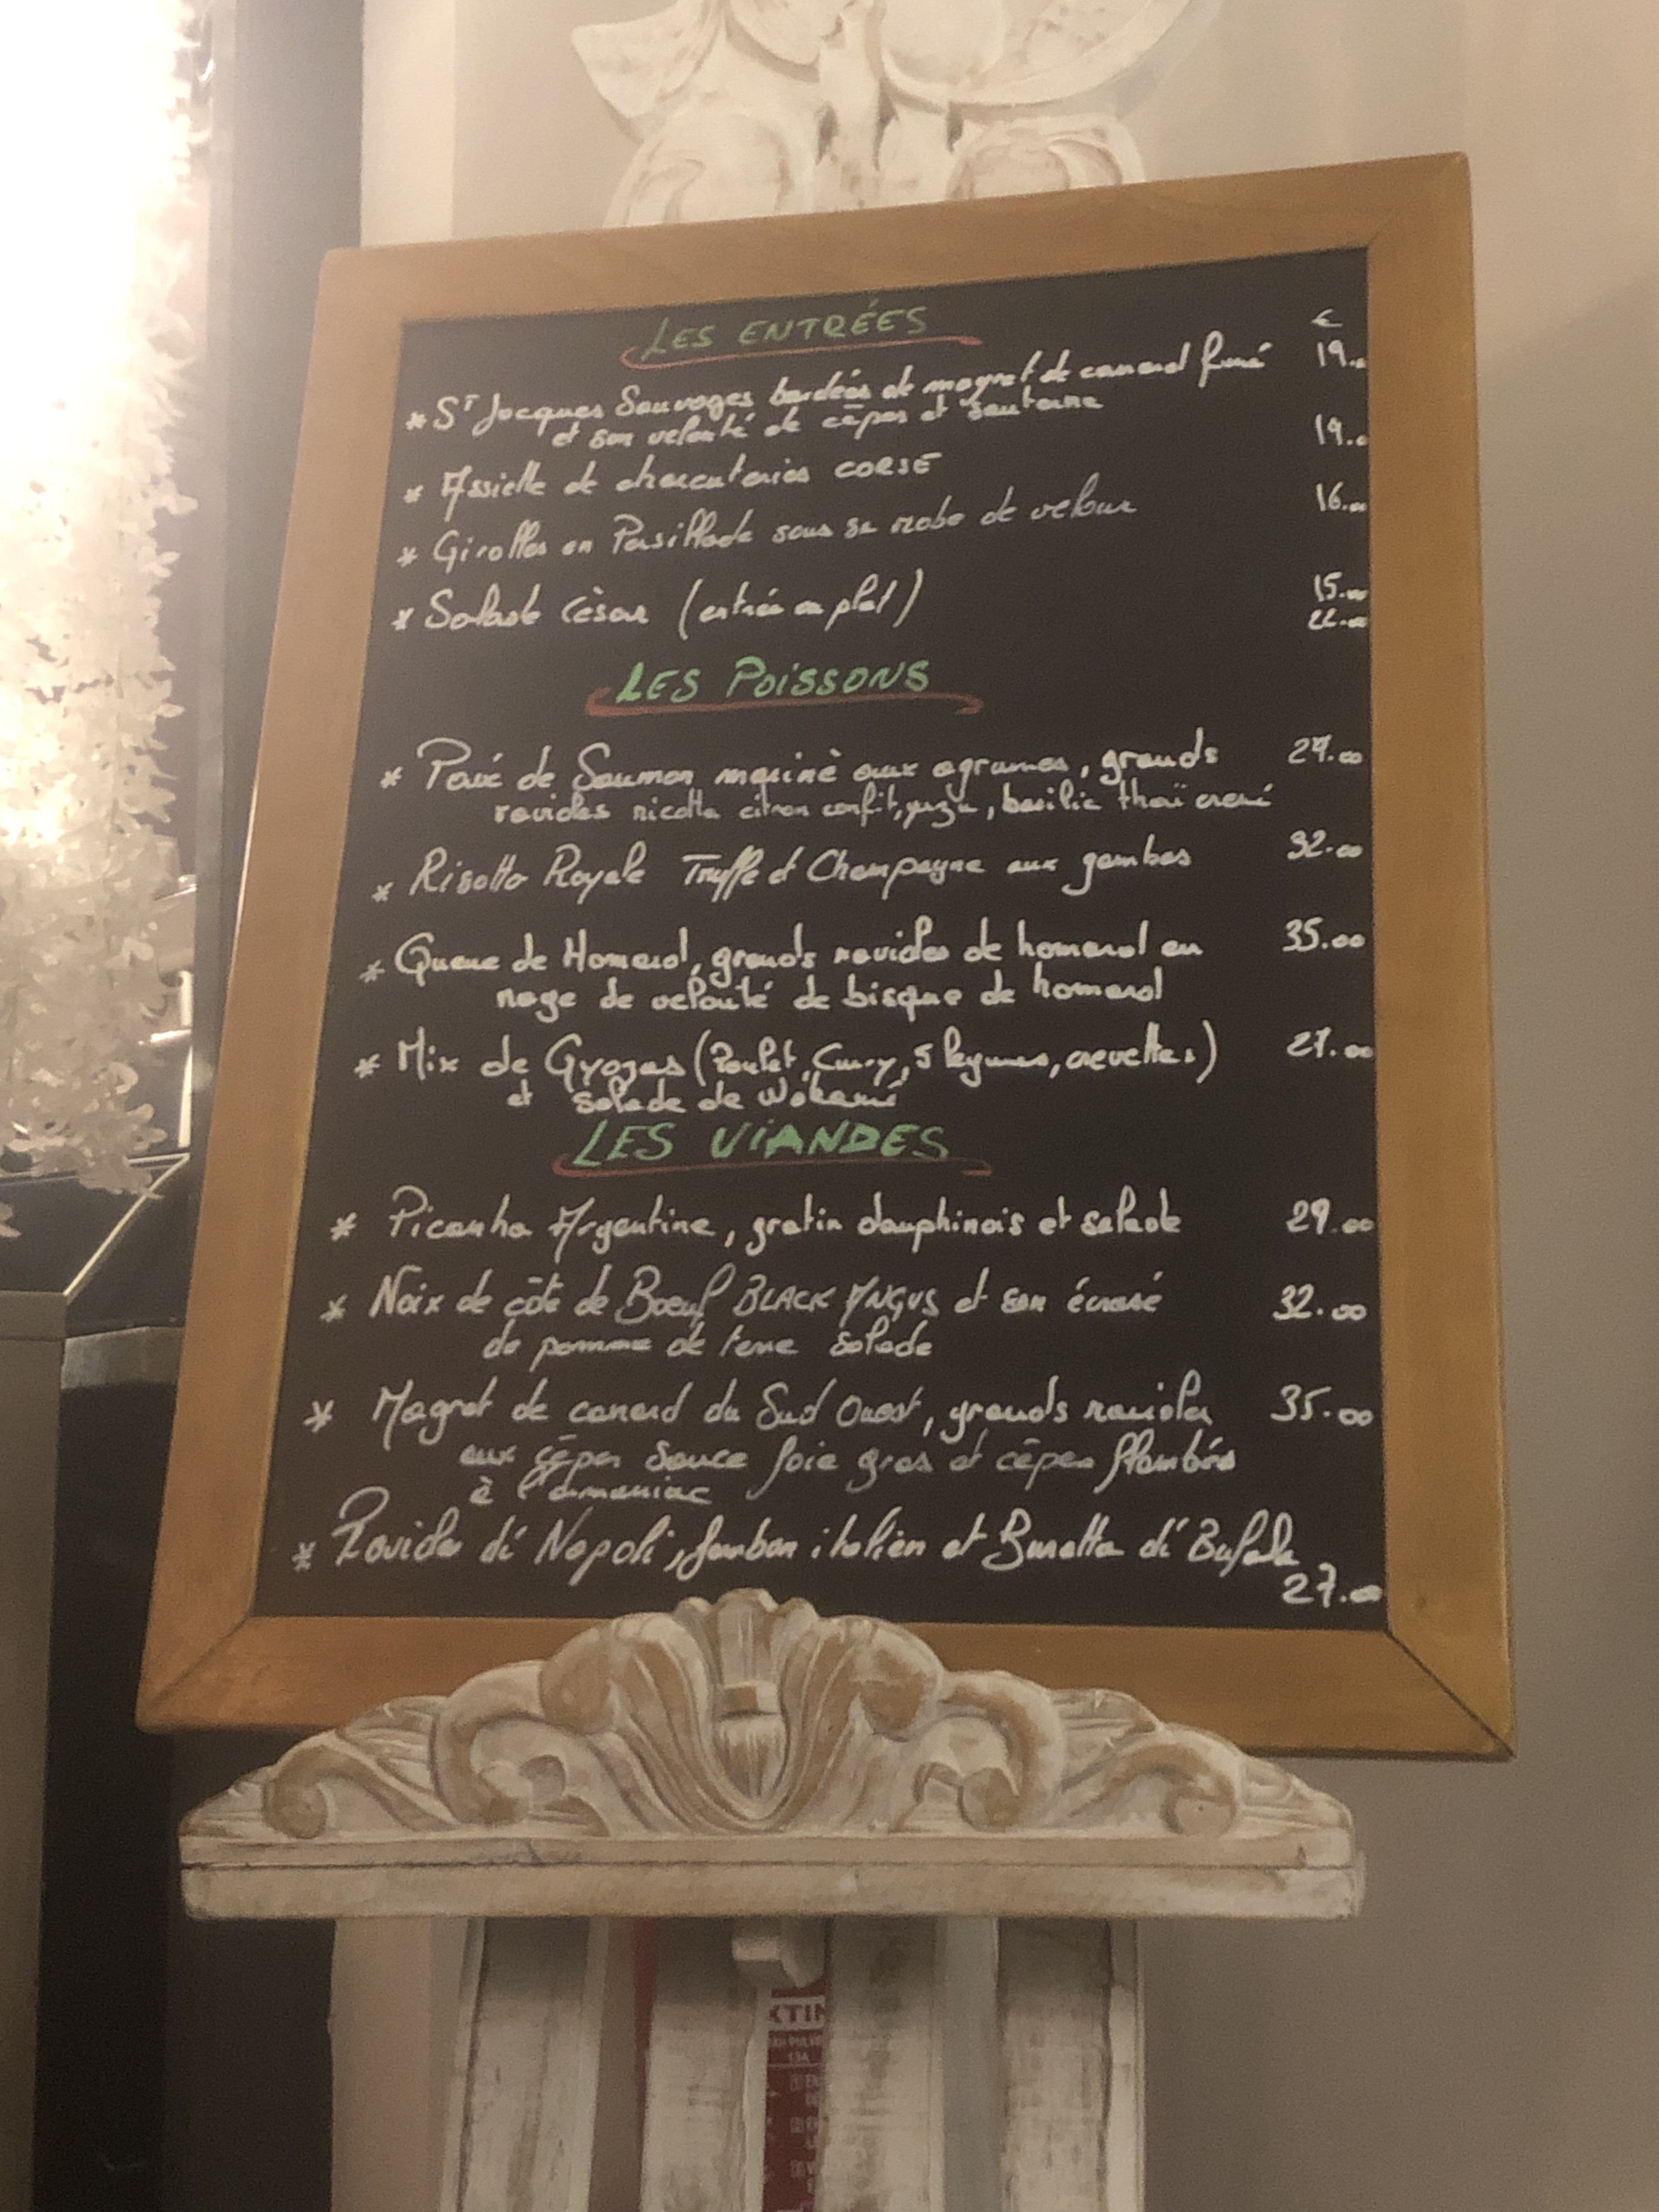 LES ENTRÉES
€
* St Jacques Sauvages bardées de magret de canard fumé 19.00
et son velouté de cêpes et Sauterne
* Assiette de charcuteries CORSE 19.00
* Girolles en Persillade sous sa robe de velour 16.00
* Salade Cèsar (entrée ou plat) 15.00
22.00
LES POISSONS
* Pavé de Saumon marinè aux agrumes, grands 27.00
raviolis ricotta citron confit, yuzu, basilic thaï crémé
* Risotto Royale Truffe et Champagne aux gambas 32.00
* Queue de Homard, grands raviolis de homard en 35.00
nage de velouté de bisque de homard
* Mix de Gyozas (Poulet, Curry, 5 légumes, crevettes) 27.00
et salade de Wakamé
LES VIANDES
* Picanha Argentine, gratin dauphinois et salade 29.00
* Noix de côte de Boeuf BLACK ANGUS et son écrasé 32.00
de pomme de terre salade
* Magret de canard du Sud Ouest, grands raviolis 35.00
aux cêpes sauce foie gras et cêpes flambés
à l'armaniac
* Raviolis di Napoli, Jambon italien et Buratta di Bufala
27.00